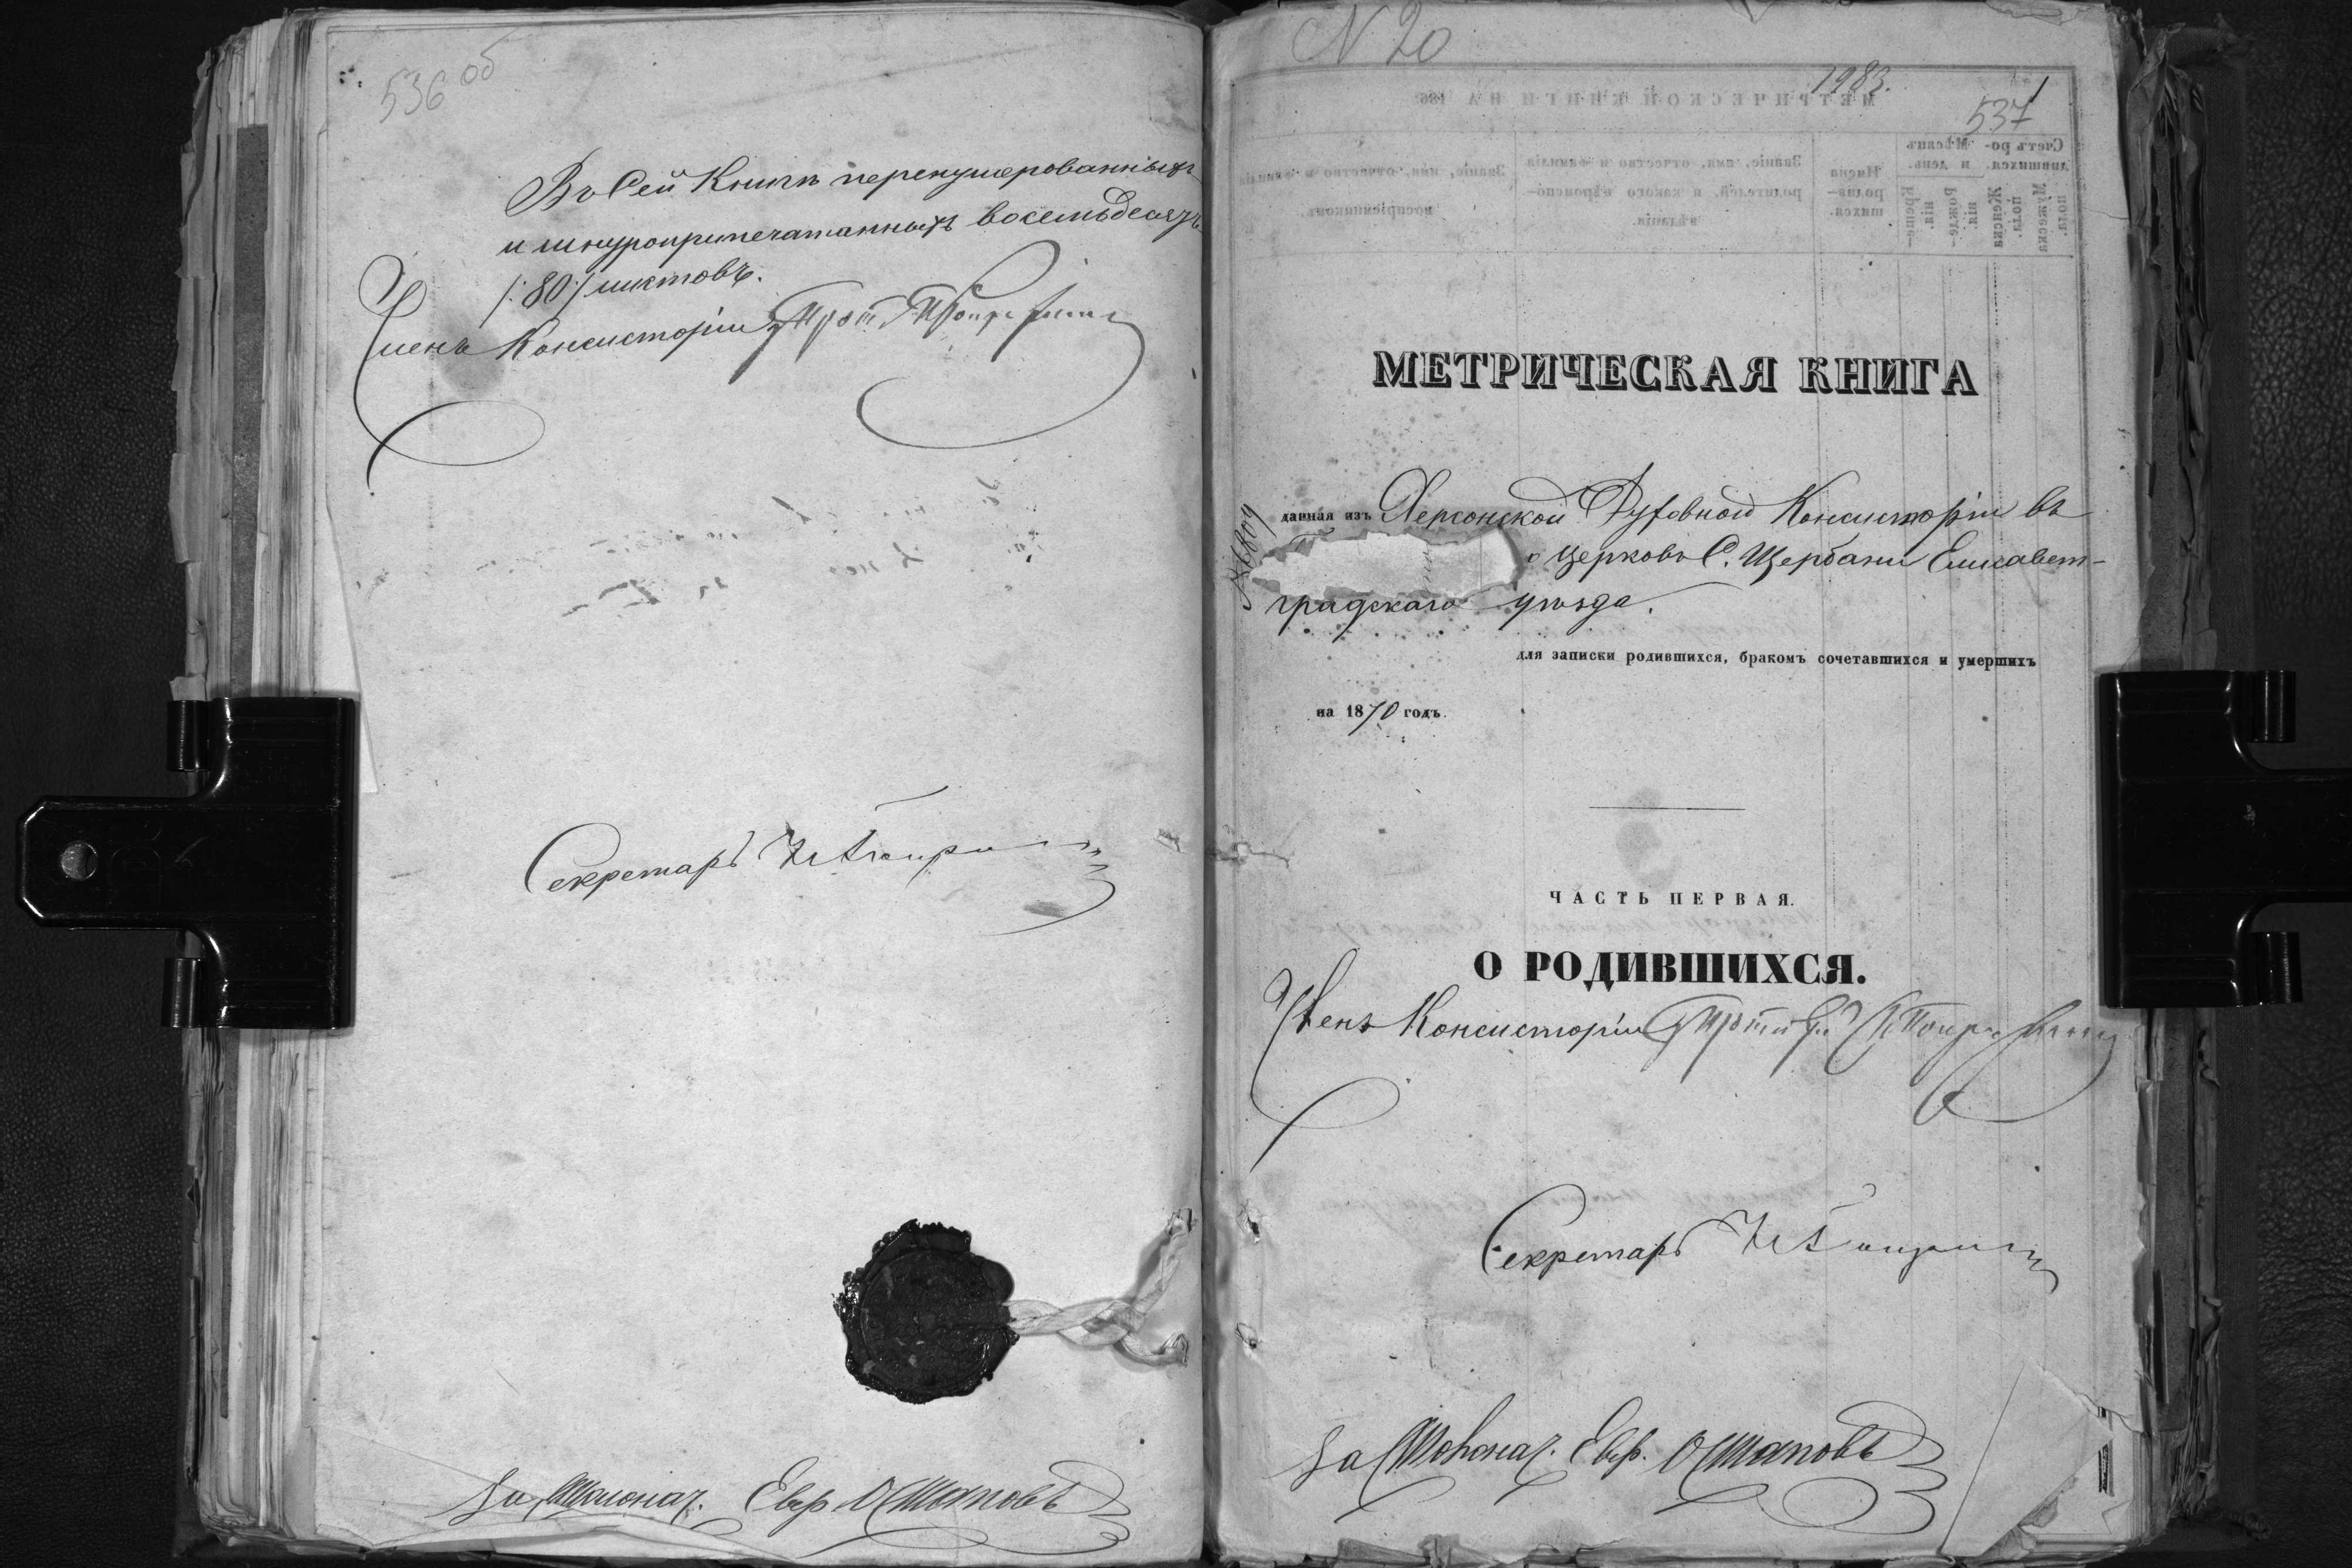 536 об
Въ Сей Книгѣ перенумерованныхъ
и шнуроприпечатанныхъ восемьдесятъ
/:80:/ листовъ.
Членъ Консисторіи
Секретарь
За Столонач. Евф. Остаповъ
N 20
1983.
МЕТРИЧЕСКОЙ КНИГИ НА 186
537
Счетъ ро-
дившихся.
Мужеска
пола.
Женска
пола.
Мѣсяцъ
и день.
Рожде-
нія.
Креще-
нія.
Имена
родив-
шихся.
Званіе, имя, отчество и фамилія
родителей, и какого вѣроиспо-
вѣданія.
Званіе, имя, отчество и фамилія
воспріемниковъ.
МЕТРИЧЕСКАЯ КНИГА
данная изъ Херсонской Духовной Консисторіи въ
церковь С. Щербани Елисавет-
градскаго уѣзда.
для записки родившихся, бракомъ сочетавшихся и умершихъ
на 1870 годъ.
ЧАСТЬ ПЕРВАЯ.
О РОДИВШИХСЯ.
Членъ Консисторіи
Секретарь
За Столонач. Евф. Остаповъ